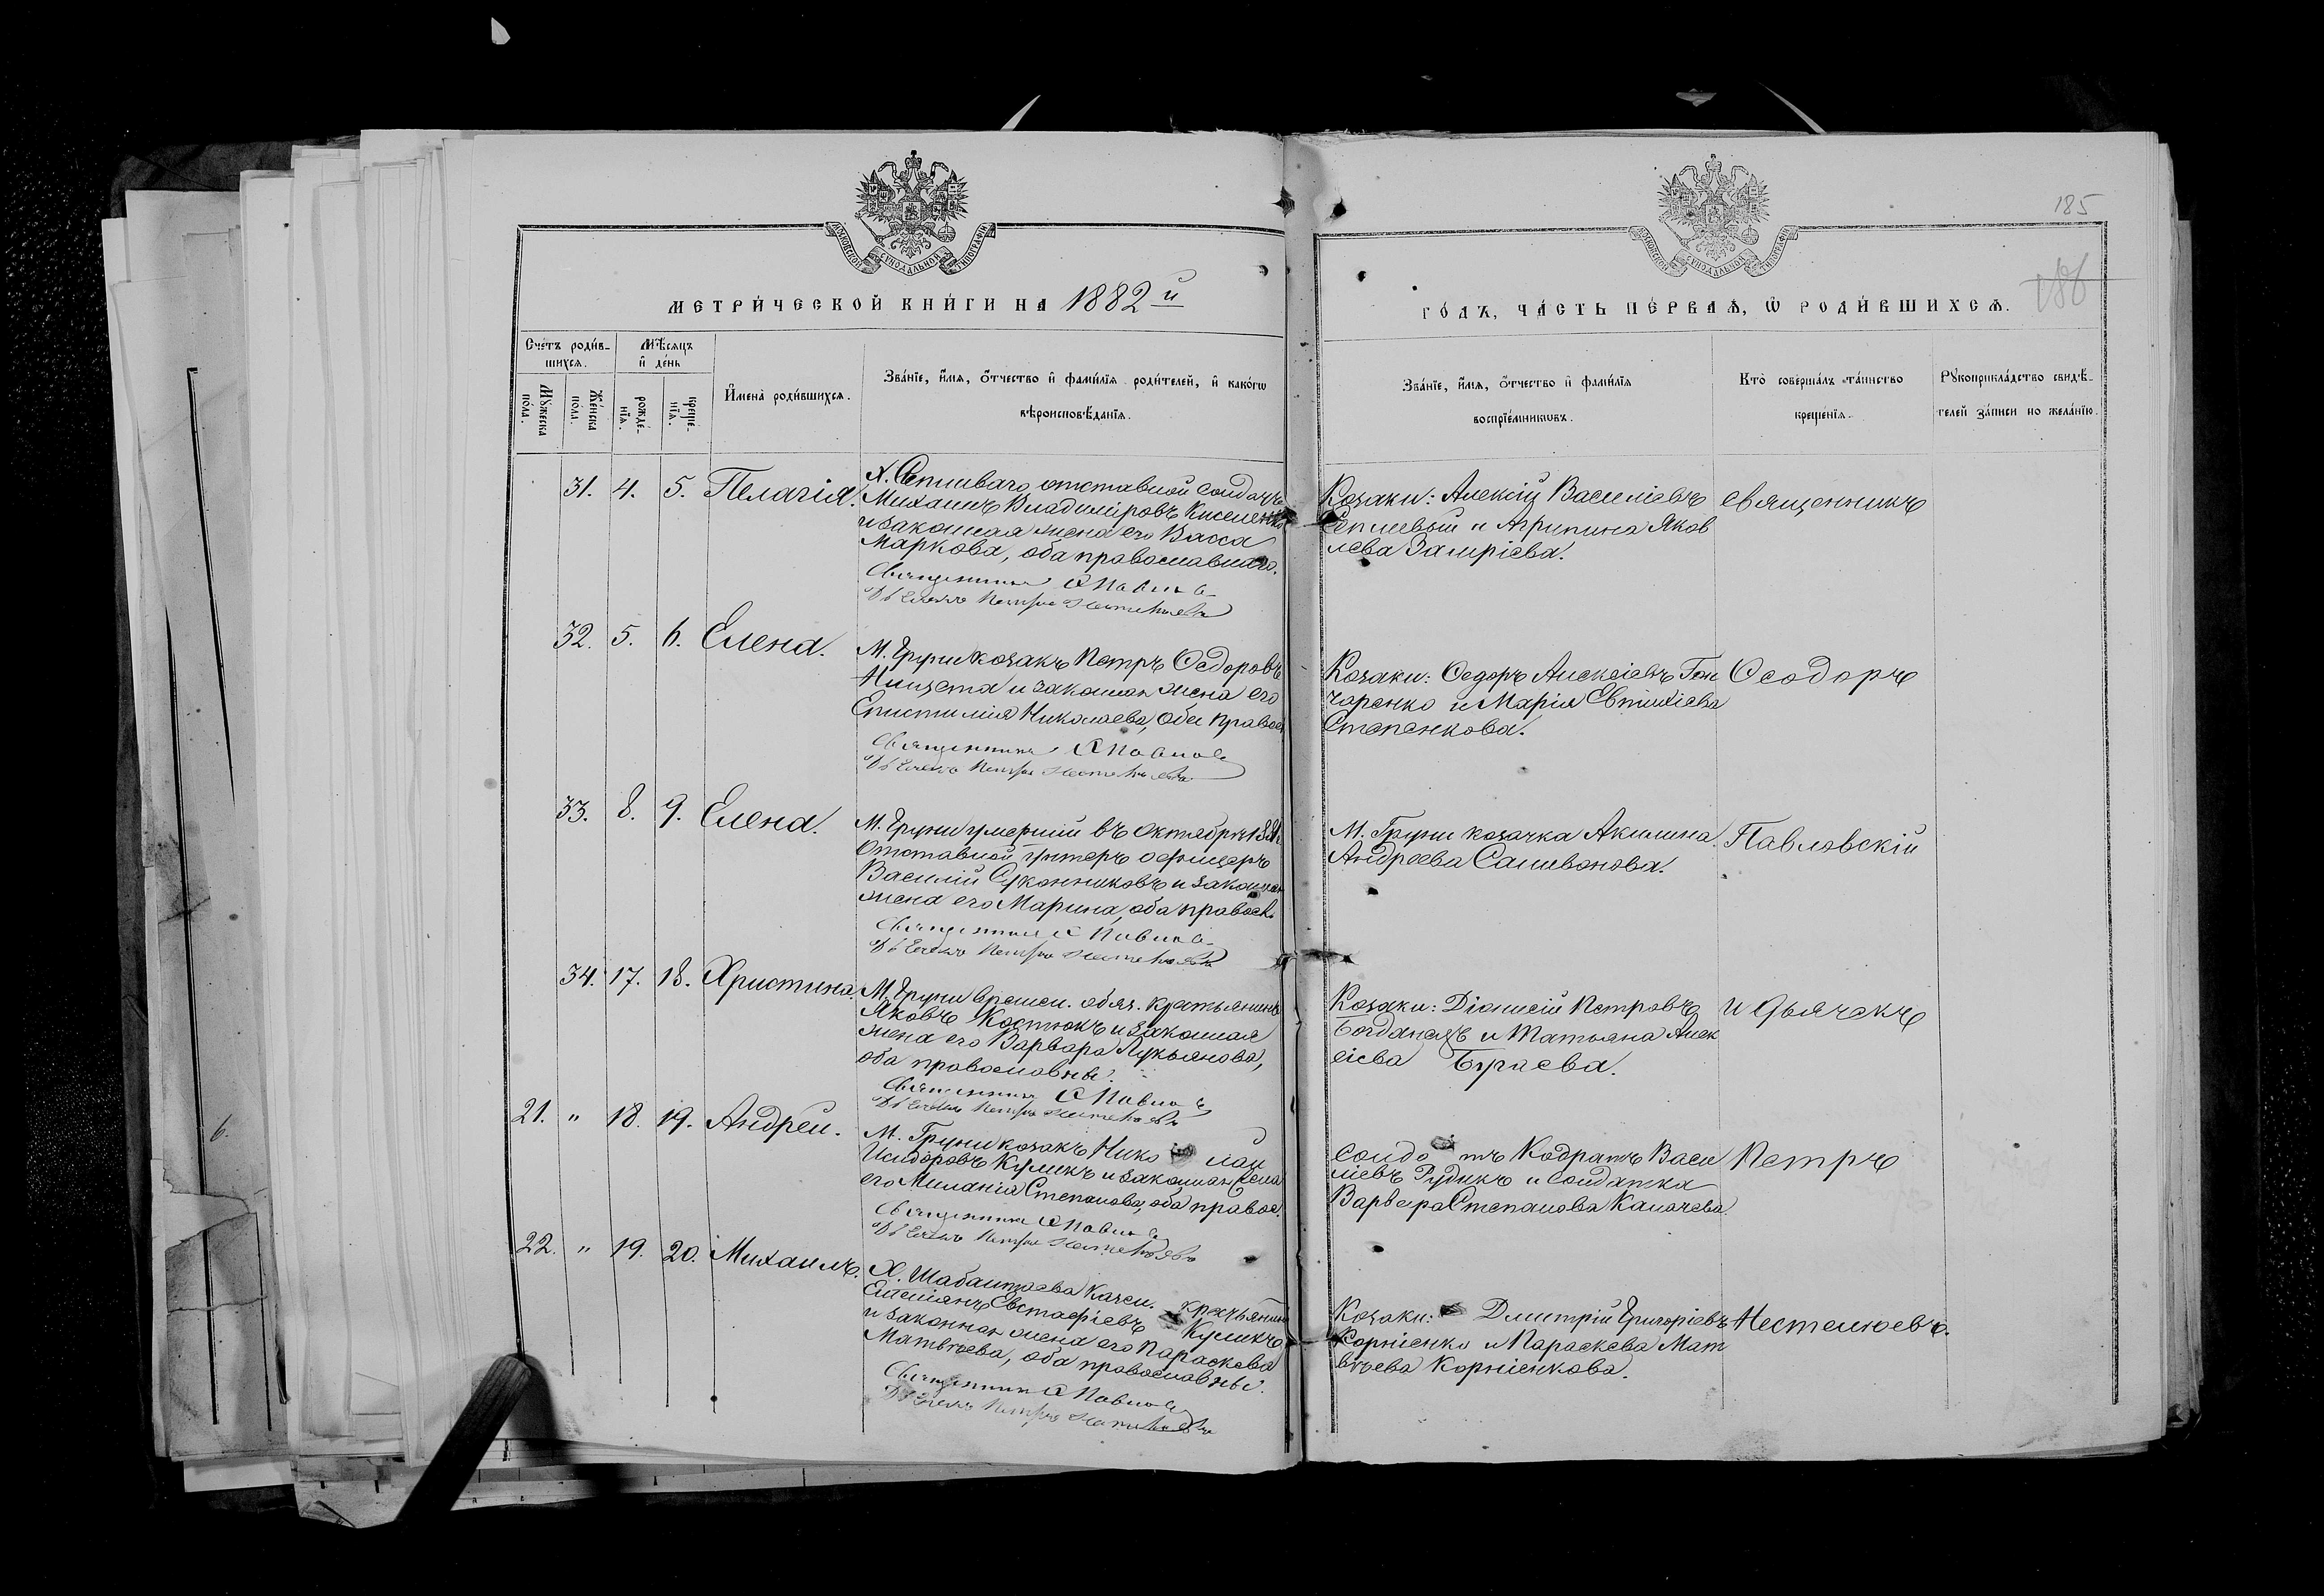 МОСКОВСКОЙ СѴНОДАЛЬНОЙ ТИПОГРАФІИ
МЕТРИ́ЧЕСКОЙ КНИ́ГИ НА 1882 й
Сче́тъ роди́в-
шихся.
Мѣ́сяцъ
и҆ де́нь
Мꙋ́жеска
по́ла.
Же́нска
по́ла.
рожде́-
нїя.
креще́-
нїя.
И҆мена̀ роди́вшихся.
Зва́нїе, и҆́мя, ѻ҆́тчество и҆ фами́лїя роди́телей, и҆ како́гѡ
вѣроисповѣ́данїя.
31. 4. 5. Пелагія.
отставной солдатъ
Михаилъ Владиміровъ
и законная жена его Васса
Маркова, оба православнаго.
Священникъ Ѳ Павлов
Дьячекъ Петръ Нестелѣевъ
32. 5. 6. Елена.
М. Груни козакъ Петръ Ѳедоровъ
Нищета и законная жена его
Епистимія Николаева, оба правосл
Священникъ Ѳ Павлов
Дьячекъ Петръ Нестелѣевъ
33. 8. 9. Елена.
М. Груни умершій въ октябрѣ
Отставной унтеръ офицеръ
Василій Суконниковъ и законная
жена его Марина, оба правосл.
Священникъ Ѳ Павлов
Дьячекъ Петръ Нестелѣевъ
34. 17. 18. Христина.
М. Груни времен. обяз. крестьянинъ
Яковъ Костюкъ и законная
жена его Варвара Лукьянова,
оба православные.
Священникъ Ѳ Павлов
Дьячекъ Петръ Нестелѣевъ
21. " 18. 19. Андрей.
М. Груни козакъ Николай
Исидоровъ Куликъ и законная жена
его Меланія Степанова, оба правос.
Священникъ Ѳ Павлов
Дьячекъ Петръ Нестелѣевъ
22. " 19. 20. Михаилъ.
Х. Шабалтаева казен. крестьянинъ
Емеліянъ Евстафіевъ Куликъ
и законная жена его Параскева
Матвѣева, оба православные.
Священникъ Ѳ Павлов
Дьячекъ Петръ Нестелѣевъ
185
186
МОСКОВСКОЙ СѴНОДАЛЬНОЙ ТИПОГРАФІИ
ГО́ДЪ, ЧА́СТЬ ПЕ́РВАЯ, Ѡ҆ РОДИ́ВШИХСЯ.
Зва́нїе, и҆́мя, ѻ҆́тчество и҆ фами́лїя
воспрїе́мникѡвъ.
Кто̀ соверша́лъ та́инство
креще́нїя.
Рꙋкоприкла́дство свидѣ́-
телей за́писи по жела́нїю.
Козаки: Алексій Василіевъ
и Агрипина Яков
лева
Священникъ
Козаки: Ѳедоръ Алексіевъ Гон
чаренко и Марія Евтихіева
Степенкова.
Ѳеодоръ
М. Груни козачка Акилина
Андреева Саливонова.
Павловскій
Козаки: Діонисій Петровъ
Богданецъ и Татьяна Алек
сіева Бураева.
и дьячекъ
Солдатъ Кодратъ Васи
ліевъ Рудикъ и солдатка
Варвара Степанова
Петръ
Козаки: Дмитрій Григоріевъ
Корніенко и Параскева Мат
вѣева Корніенкова.
Нестелѣевъ.
6.